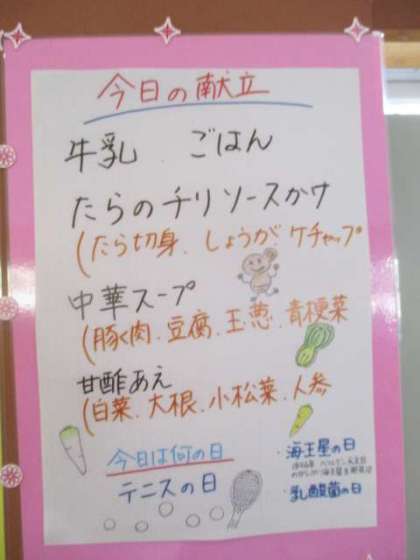 今日の献立
牛乳 ごはん
たらのチリソースかけ
(たら切身、しょうが、ケチャップ
中華スープ
(豚肉、豆腐、玉葱、青梗菜
甘酢あえ
(白菜、大根、小松菜、人参
今日は何の日
テニスの日
・海王星の日
・乳酸菌の日